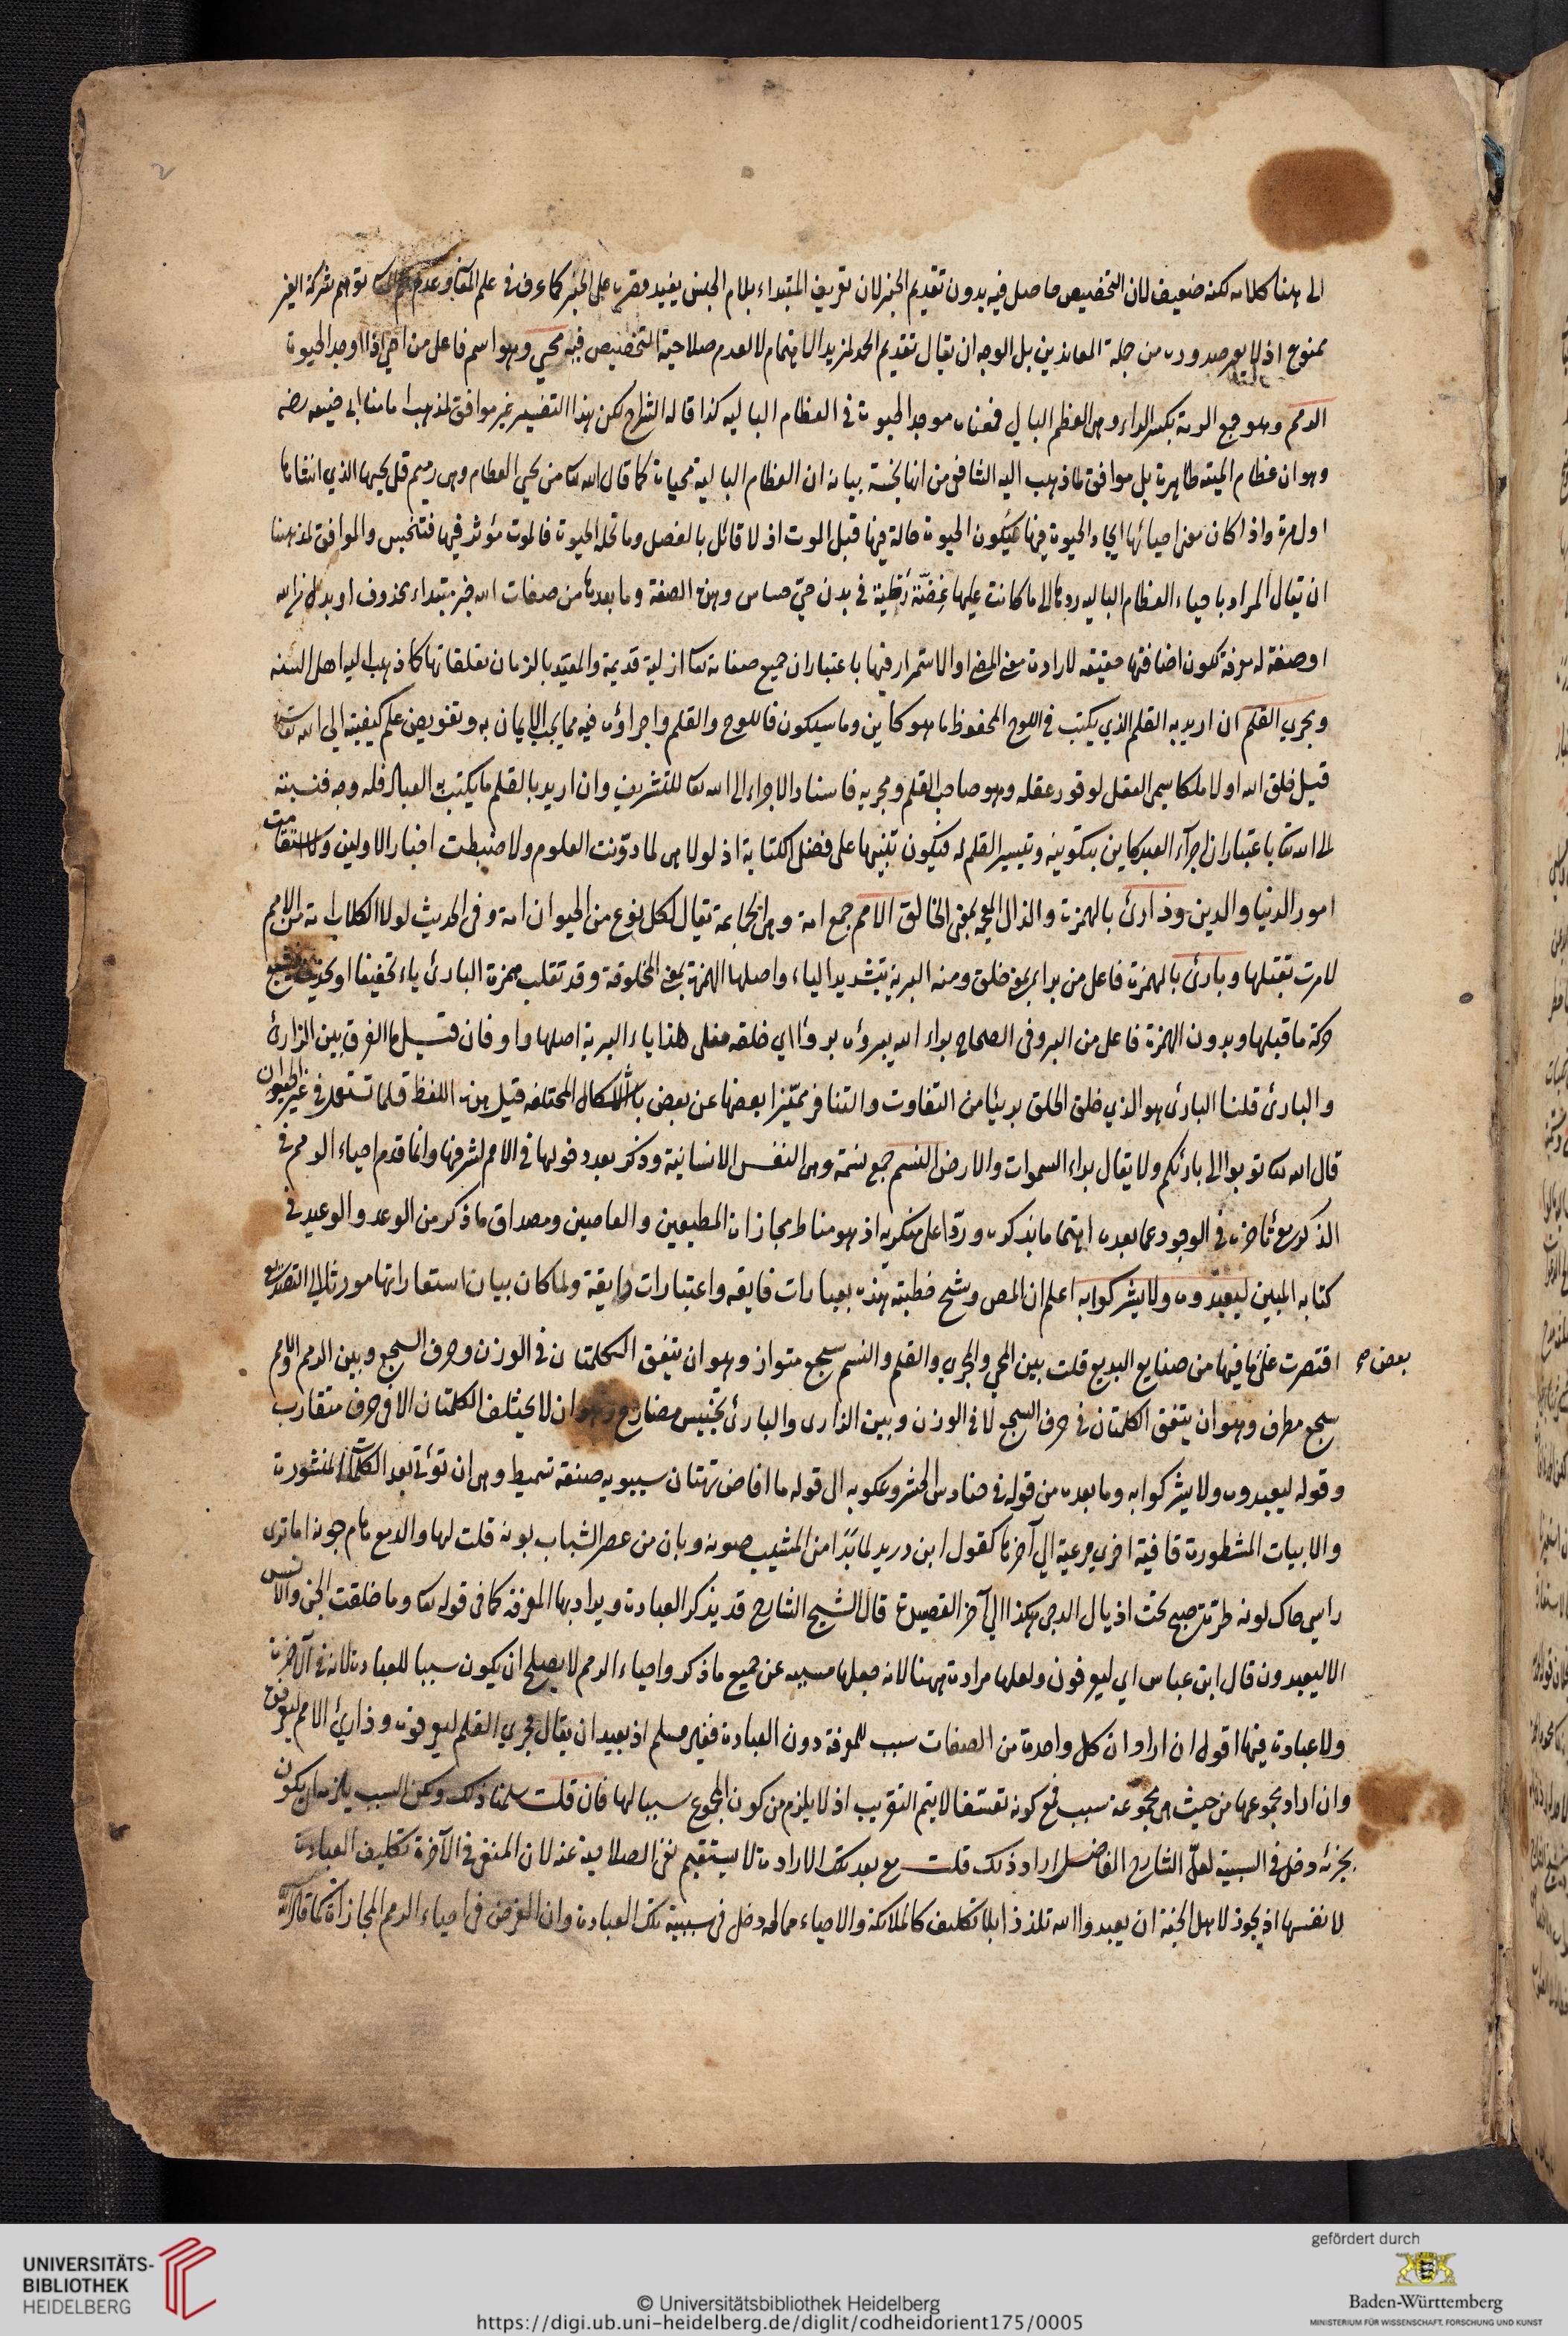 الى هنا كلامه لكنه ضعيف لان التخصيص حاصل فيه بدون تقديم الخبر لان تعريف المبتداء بلام الجنس يفيد قصره على الخبر كما عرف في علم المعاني وعدم توهم شركة الغير
ممنوع اذ لا يعد صدوره من جملة المعاندين بل الوجه ان يقال تقديم الحمد لمزيد الاهتمام لا لعدم صلاحية التخصيص فيه محيي وهو اسم فاعل من احيى اذا اوجد الحيوة
الرمم وهو جمع الرمة بكسر الراء وهى العظم البالى فمعناه موجد الحيوة في العظام الباليه كذا قاله الشارح لكن هذا التفسير غير موافق لمذهب امامنا ابى حنيفه رضه
وهو ان عظام الميته طاهرة بل موافق لما ذهب اليه الشافعي من انها نجسة بيانه ان العظام البالية محياة كما قال الله تعا من يحيي العظام وهى رميم قل يحييها الذي انشاها
اول مرة واذا كان معنى احيائها ايجاد الحيوة فيها فيكون الحيوة حالة فيها قبل الموت اذ لا قائل بالفصل وما تحله الحيوة فالموت مؤثر فيها فتنجس والموافق لمذهبنا
ان يقال المراد باحياء العظام الباليه ردها الى ما كانت عليها غضّة رطبة في بدن حيّ حساس وهذه الصفة وما بعدها من صفات الله خبر مبتداء محذوف او بدل من الله
او صفة له معرفة لكون اضافتها حقيقه لارادة معنى المضى او الاستمرار فيها باعتبار ان جميع صفاته تعا ازلية قديمة والمقيد بالزمان تعلقاتها كما ذهب اليه اهل السنه
ومجري القلم ان اريد به القلم الذي يكتب في اللوح المحفوظ ما هو كاين وما سيكون فاللوح والقلم واجراؤه فيه مما يجب الايمان به وتفويض علم كيفيته الى الله تعا
قيل خلق الله اولا ملكا سمى العقل لوفور عقله وهو صاحب القلم ومجريه فاسناد الاجراء الى الله تعا للتشريف وان اريد بالقلم ما يكتب به العباد فله وجه فنسبته
الى الله تعا باعتبار ان اجرآء العبد كاين بتكوينه وتيسير القلم له فيكون تنبيها على فضل الكتابة اذ لولا هى لما دوّنت العلوم ولا ضبطت اخبار الاولين وكا استقامت
امور الدنيا والدين وذارئ بالهمزة والذال المعجمة بمعنى الخالق الامم جمع امة وهى الجماعة تقال لكل نوع من الحيوان امة وفى الحديث لولا الكلاب امة من الامم
لامرت بقتلها وبارئ بالهمزة فاعل من برا بمعنى خلق ومنه البرية بتشديد الياء واصلها الهمزة بمعنى المخلوقة وقد تقلب همزة البارئ ياء تخفيفا او
حركة ما قبلها وبدون الهمزة فاعل من البرو فى الصحاح براه الله يبروه بروا اي خلقه فعلى هذا ياء البرية اصلها واو فان قيل ما الفرق بين الذارئ
والبارئ قلنا البارئ هو الذي خلق الخلق بريئا من التفاوت والتنافر مميّزا بعضها عن بعض بالاشكال المختلفه قيل هذه اللفظ قلما تستعمل في غير الحيوان
قال الله تعا توبوا الى بارئكم ولا يقال براء السموات والارض النسم جمع نسمة وهى النفس الانسانية وذكره بعد دخولها في الامم لشرفها وانما قدم احياء الرمم في
الذكر مع تأخره في الوجود عما بعده اهتماما بذكره وردّا على منكريه اذ هو مناط مجازاة المطيعين والعاصين ومصداق ما ذكر من الوعد والوعيد في
كتابه المبين ليعبدوه ولا يشركوا به اعلم ان المص وشح خطبته هذه بعبارات فايقه واعتبارات رايقة ولما كان بيان استعاراتها مورثا للاقتصار
اقتصرت على ما فيها من صنايع البديع قلت بين المحي والمجري والقلم والنسم سجع متواز وهو ان يتفق الكلمتان في الوزن وحرف السجع وبين الرمم والامم بعض صح
سجع مطرف وهو ان يتفق الكلمتان في حرف السجع لا في الوزن وبين الذارى والبارئ تجنيس مضارع وهو ان لا يختلف الكلمتان الا في حرف متقارب
وقوله ليعبدوه ولا يشركوا به وما بعده من قوله في حنادس الحشر وعكوبه الى قوله ما افاض تهتان سيبويه صنعة تسميط وهى ان تؤتى بعد الكلمات المنثورة
والابيات المشطورة قافية اخرى مرعية الى آخرها كقول ابن دريد لما بدا من المشيب صونه وبان من عصر الشباب بونه قلت لها والدمع هام جونه اما ترى
راسي حاك لونه طرّة صبح تحت اذيال الدجى هكذا الى آخر القصيدة قال الشيخ الشارح قد يذكر العبادة ويراد بها المعرفة كما فى قوله تعا وما خلقت الجن والانس
الا ليعبدون قال ابن عباس اي ليعرفون ولعلها مرادة ههنا لانه جعلها مسببه عن جميع ما ذكر واحياء الرمم لا يصلح ان يكون سببا للعبادة لانه في الآخرة
ولا عبادة فيها اقول ان اراد ان كل واحدة من الصفات سبب للمعرفة دون العبادة فغير مسلم اذ بعيد ان يقال مجري القلم ليعرفوه وذارئ الامم ليعرفوه
وان اراد مجموعها من حيث هى مجموعه سبب فمع كونه تعسفا لا يتم التقريب اذ لا يلزم من كون المجموع سببا لها فان قلت سلمنا ذلك وعن السبب يلزمه ان يكون
بجزئه دخل فى السببية لعلّ الشارح الفاضل اراد ذلك قلت مع بعد تلك الارادة لا يستقيم نفى الصلاحية عنه لان المنفى في الآخرة تكليف العبادة
لا نفسها اذ يجوز لاهل الجنة ان يعبدوا الله تلذذا بلا تكليف كالملائكة والاحياء مما له دخل فى سببية تلك العبادة وان الغرض فى احياء الرمم المجازاة كما قال الله
UNIVERSITÄTS-
BIBLIOTHEK
HEIDELBERG
© Universitätsbibliothek Heidelberg
https://digi.ub.uni-heidelberg.de/diglit/codheidorient175/0005
gefördert durch
Baden-Württemberg
MINISTERIUM FÜR WISSENSCHAFT, FORSCHUNG UND KUNST